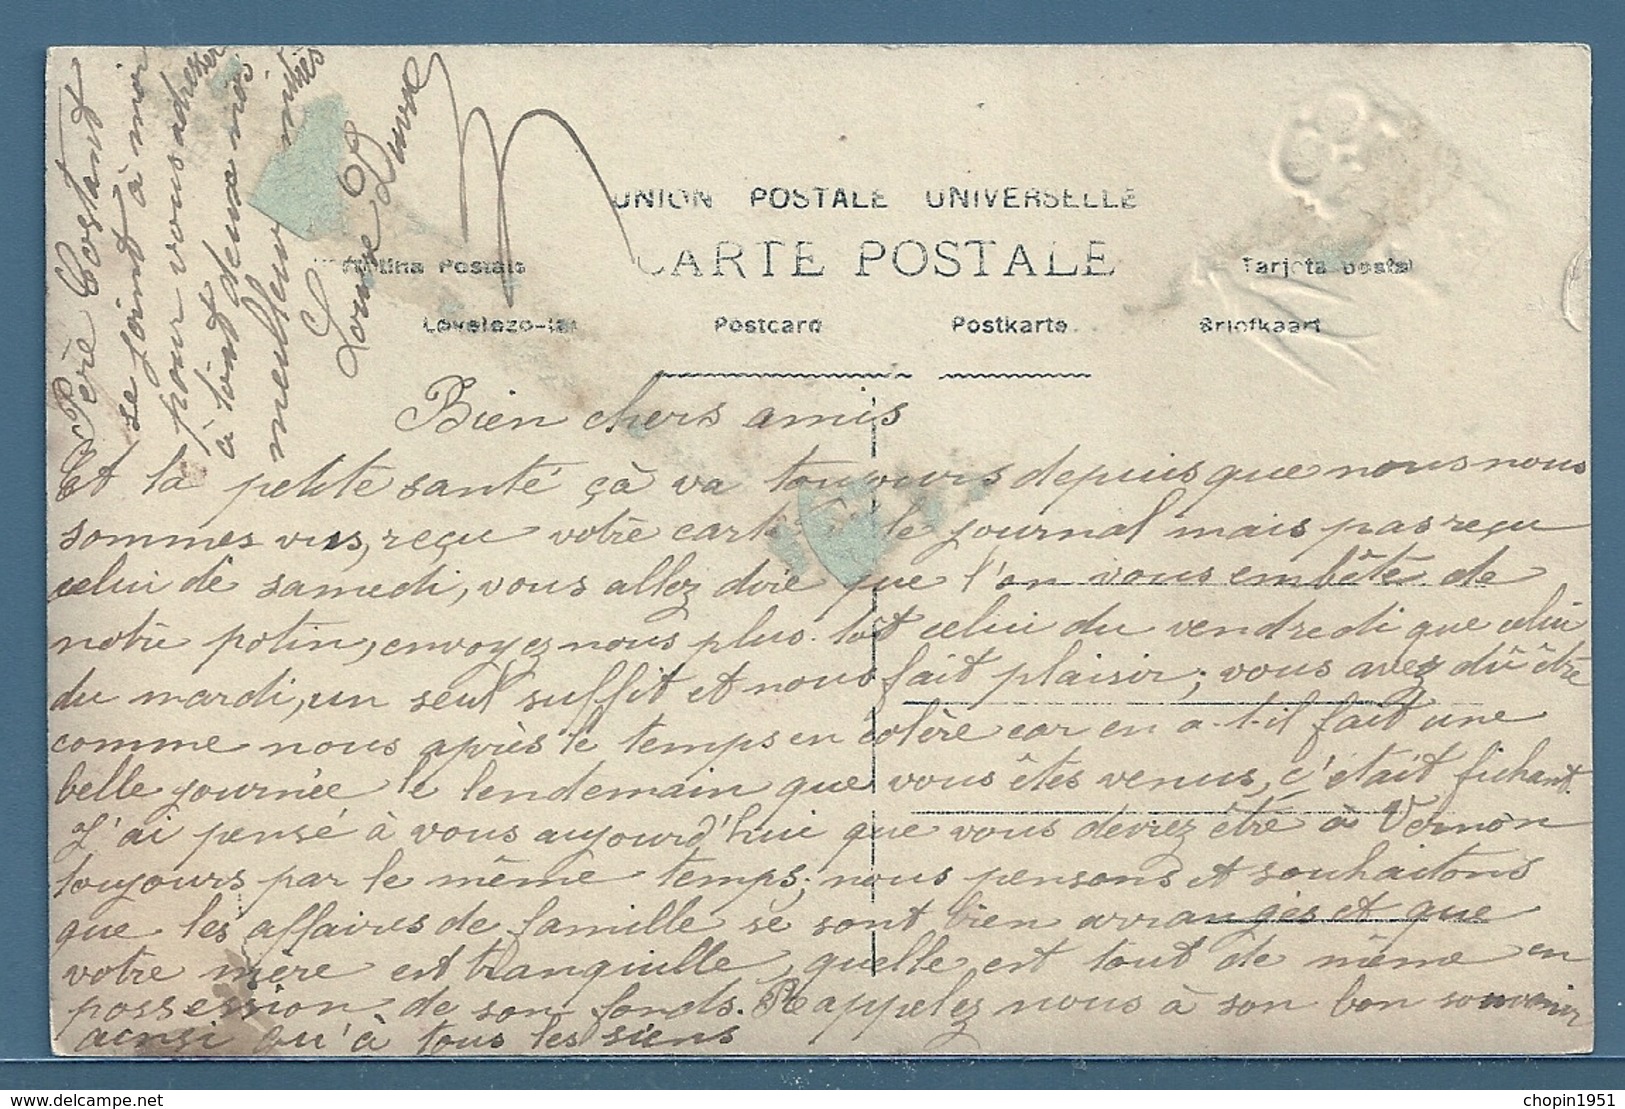 UNION POSTALE UNIVERSELLE
CARTE POSTALE
Tarjeta postal
Levelezo-lap
Postcard
Postkarte
Briefkaart
Bien chers amis
Et la petite santé çà va toujours depuis que nous nous
sommes vus, reçu votre carte le journal mais pas reçu
celui de samedi, vous allez dire que l'on vous embête de
notre potin, envoyez nous plus tôt celui du vendredi que celui
du mardi, un seul suffit et nous fait plaisir; vous avez dû être
comme nous après le temps en colère car en a-t-il fait une
belle journée le lendemain que vous êtes venus, c'était fichant.
J'ai pensé à vous aujourd'hui que vous devrez être à Vernon
toujours par le même temps; nous pensons et souhaitons
que les affaires de famille se sont bien arrangés et que
votre mère est tranquille, quelle est tout de même en
possession de son fonds. Rappelez nous à son bon souvenir
ainsi qu'à tous les siens
Père Costant
se joint à moi
pour vous adresser
à tout deux nos
meilleurs amitiés
Louise Duval
chopin1951